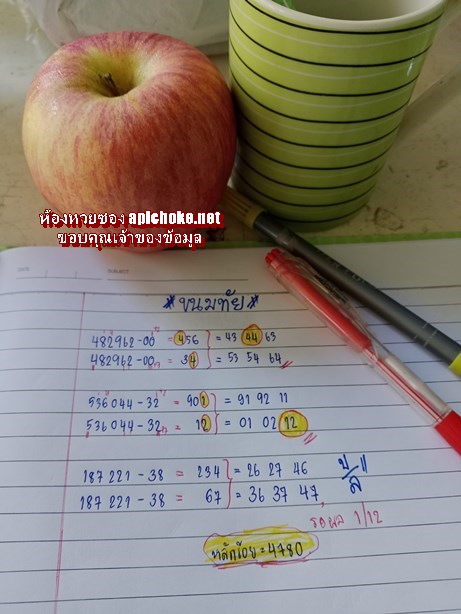 ห้องหวยซอง apichoke.net
ขอบคุณเจ้าของข้อมูล
*ขนมทัย*
482962-00 = 456 } = 43 44 63
482962-00 = 34 } = 53 54 64
536044-32 = 901 } = 91 92 11
536044-32 = 12 } = 01 02 12
187221-38 = 234 } = 26 27 46
187221-38 = 67 } = 36 37 47
บ/ล "
รอผล 1/12
หลักร้อย = 4780